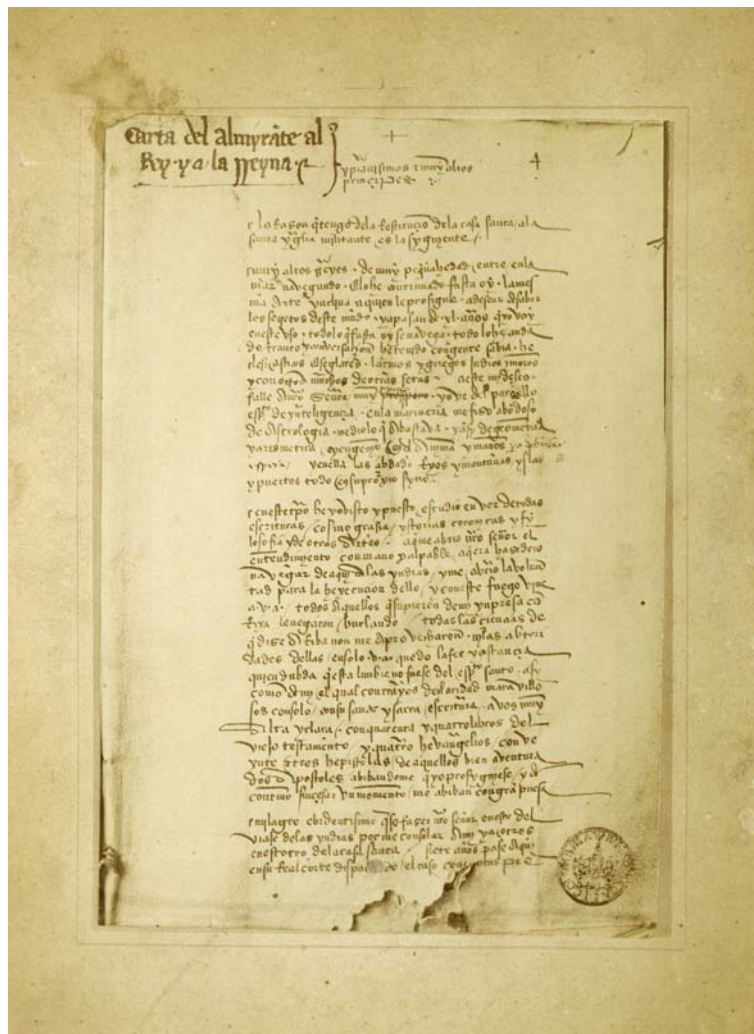 Carta del almyrãte al
Rey · y a · la Reyna ·
xp̃ianisimos e muy altos
prinçipes
la rason q̃ tengo de la restituçiõ de la casa santa a la
santa yglia militante es la syguiente
muy altos rreyes · de muy pequeña hedad entre en la
mar navegando · e lo he continuado fasta oy · la mes
ma arte ynclina a quien le prosigue a desear de saber
los secretos deste mundo · ya pasan de · xl · años q̃ yo voy
en este uso · todo lo q̃ fasta oy se navega · todo lo he anda
do · trauto y conversaçion he tenido con gente sabia ·
eclesiasticos e seglares · latinos y griegos judios y moros
y con otros muchos de otras setas · a este mi deseo
falle a nr̃o señor muy propiçio · y ove del para ello
esp̃u de ynteligençia · en la marineria me fiso abondoso
de astrologia me dio lo q̃ abastava · y asy de geometria
y arismetica
y las çibdades rios y montañas yslas
y puertos todo en su propio sytio
en este tp̃o he yo visto y puesto estudio en ver de todas
escrituras cosmografia ystorias coronicas y fy
losofia y de otras artes · a que me abrio nr̃o señor el
entendimiento con mano palpable a que era hasedero
navegar de aqui a las yndias y me abrio la volun
tad para la hexecuçion dello y con este fuego vine
a v · a · todos aquellos q̃ supieron de mi ynpresa con
rixa le negaron burlando todas las çiençias de
q̃ dise arriba non me aprovecharon ni las abtori
dades dellas · en solo v · a · quedo la fee y constançia
quien dubda q̃ esta lunbre no fuese del esp̃u santo · asy
como de my el qual con rrayos de claridad maravillo
sos consolo con su santa y sacra escritura a vos muy
alta y clara con quarenta y quatro libros del
viejo testamento y quatro hevangelios con ve
ynte e tres hepistolas de aquellos bien aventura
dos apostoles abibandome q̃ yo prosyguiese y de
contino sin çesar un momento me abiban con gran priesa
milagro ebidentisimo quiso faser nr̃o señor en esto del
viaje de las yndias por me consolar a mi y a otros
en estotro de la casa santa · siete años pase aqui
en su real corte disputando el caso con tantas